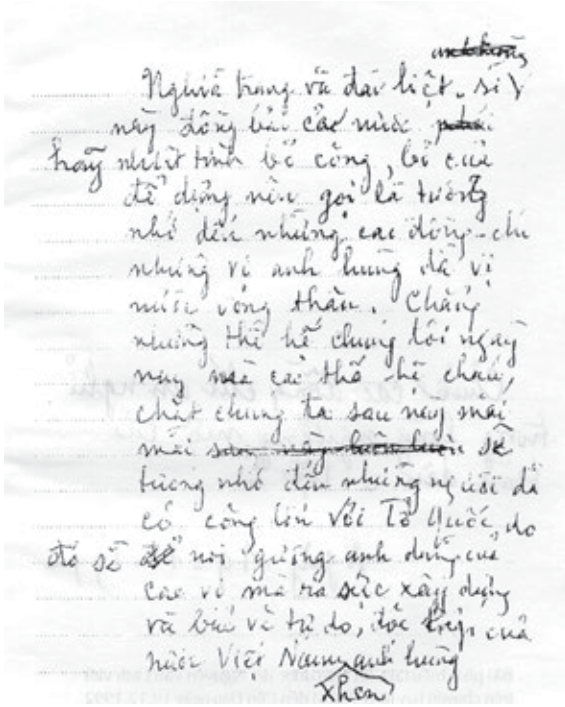 Nghĩa trang và đài liệt sĩ
này đồng bào các nước
hãy nhiệt tình bỏ công, bỏ của
để dựng nên gọi là tưởng
nhớ đến những các đồng chí
những vị anh hùng đã vì
nước vong thân. Chẳng
những thế hệ chúng tôi ngày
nay mà cả thế hệ cháu,
chắt chúng ta sau này mãi
mãi sau này luôn luôn sẽ
tưởng nhớ đến những người đã
có công lớn với Tổ Quốc, do
đó sẽ noi gương anh dũng của
các vị mà ra sức xây dựng
và bảo vệ tự do, độc lập của
nước Việt Nam anh hùng